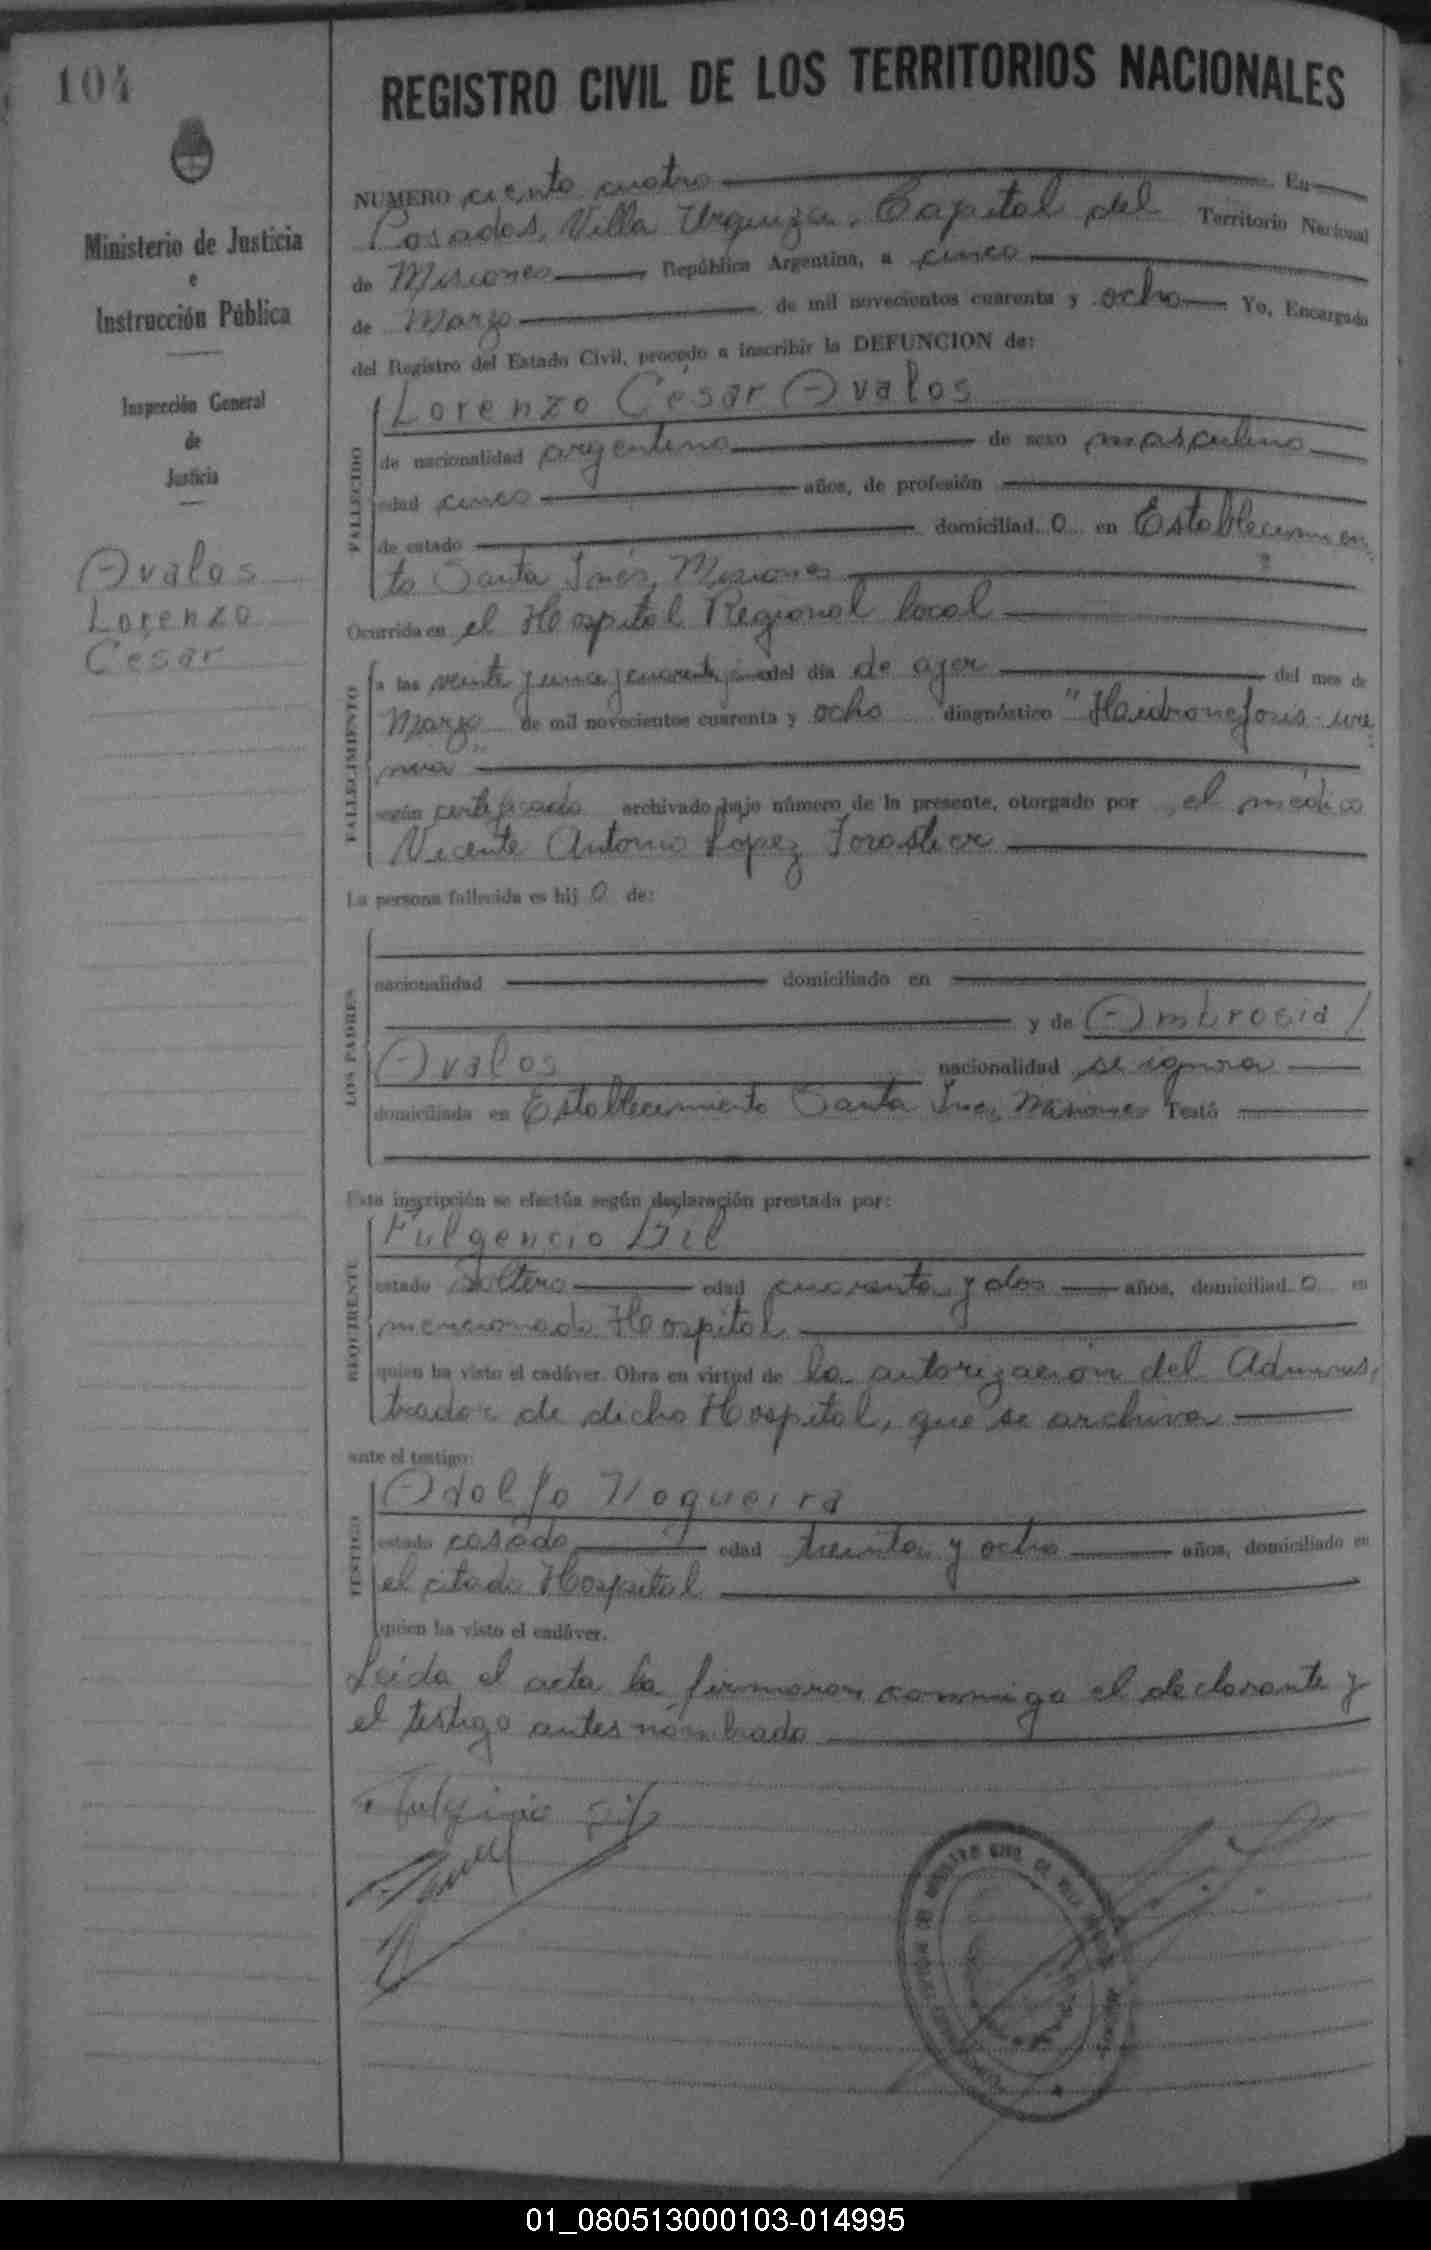 104
REGISTRO CIVIL DE LOS TERRITORIOS NACIONALES
Ministerio de Justicia
e
Instrucción Pública
Inspección General
de
Justicia
Avalos
Lorenzo
Cesar
NUMERO ciento cuatro En
Posadas, Villa Urquiza, Capital del Territorio Nacional
de Misiones República Argentina, a cinco
de Marzo de mil novecientos cuarenta y ocho Yo, Encargado
del Registro del Estado Civil, procedo a inscribir la DEFUNCION de:
FALLECIDO
Lorenzo César Avalos
de nacionalidad argentina de sexo masculino
edad cinco años, de profesión
de estado domiciliad o en Establecimien
to Santa Inés, Misiones
Ocurrida en el Hospital Regional local
FALLECIMIENTO
a las veinte y una y cuarenta del día de ayer del mes de
Marzo de mil novecientos cuarenta y ocho diagnóstico "Haidronefosis-ure
mia"
según certificado archivado bajo número de la presente, otorgado por el médico
Vicente Antonio Lopez Forastier
La persona fallecida es hij o de:
LOS PADRES
nacionalidad domiciliado en
y de Ambrosia
Avalos nacionalidad se ignora
domiciliada en Establecimiento Santa Ines, Misiones Testó
Esta inscripción se efectúa según declaración prestada por:
REQUIRENTE
Fulgencio Gil
estado soltero edad cuarenta y dos años, domiciliad o en
mencionado Hospital
quien ha visto el cadáver. Obra en virtud de la autorización del Adminis
trador de dicho Hospital, que se archiva
ante el testigo:
TESTIGO
Adolfo Nogueira
estado casado edad treinta y ocho años, domiciliado en
el citado Hospital
quien ha visto el cadáver.
Leida el acta la firmaron conmigo el declarante y
el testigo antes nombrado
Fulgencio Gil
01_080513000103-014995